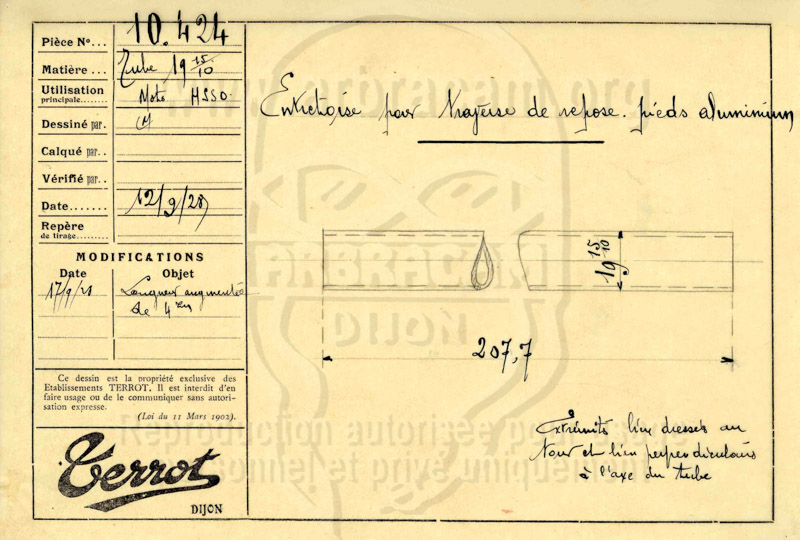 Pièce N°... 10.424
Matière ... Tube 19 15/10
Utilisation principale........ Moto HSSO.
Dessiné par.
Calqué par..
Vérifié par..
Date....... 12/9/28
Repère de tirage.........
MODIFICATIONS
Date Objet
17/9/28 Longueur augmentée
de 4
Ce dessin est la propriété exclusive des
Etablissements TERROT. Il est interdit d'en
faire usage ou de le communiquer sans autori-
sation expresse.
(Loi du 11 Mars 1902).
Terrot
DIJON
Entretoise pour traverse de repose-pieds aluminium
19 15/10
207,7
Extrémités bien dressées au
tour et bien perpendiculaires
à l'axe du tube
www.arbracam.org
ARBRACAM
DIJON
Reproduction autorisée pour usage
personnel et privé uniquement